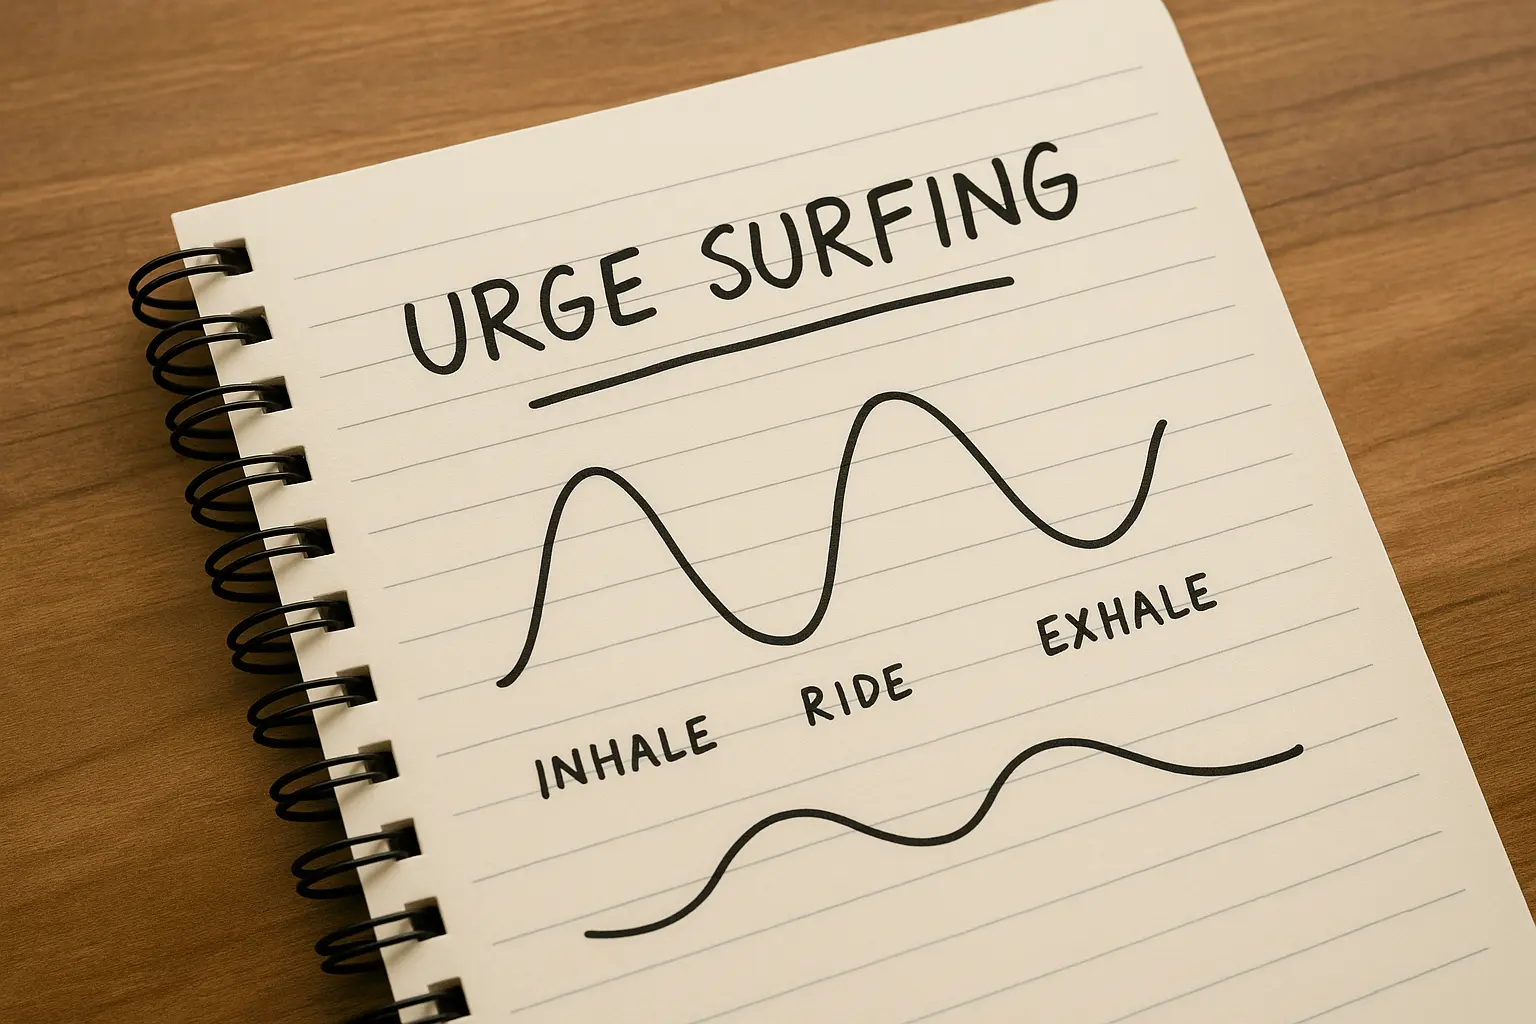 URGE SURFING
INHALE RIDE EXHALE